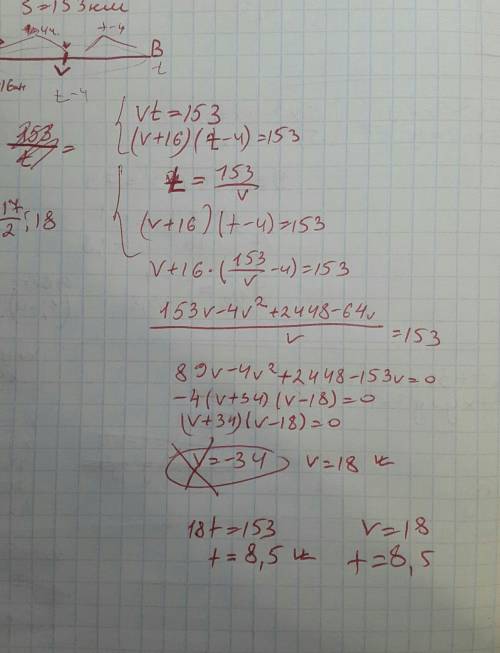 S=153км
t-4
B
t
16км
t-4
vt=153
(v+16)(t-4)=153
153/t =
t = 153/v
17/2; 18
(v+16)(t-4)=153
v+16·(153/v -4)=153
(153v-4v²+2448-64v)/v =153
89v-4v²+2448-153v=0
-4(v+34)(v-18)=0
(v+34)(v-18)=0
v=-34 v=18
18t=153 v=18
t=8,5 t=8,5